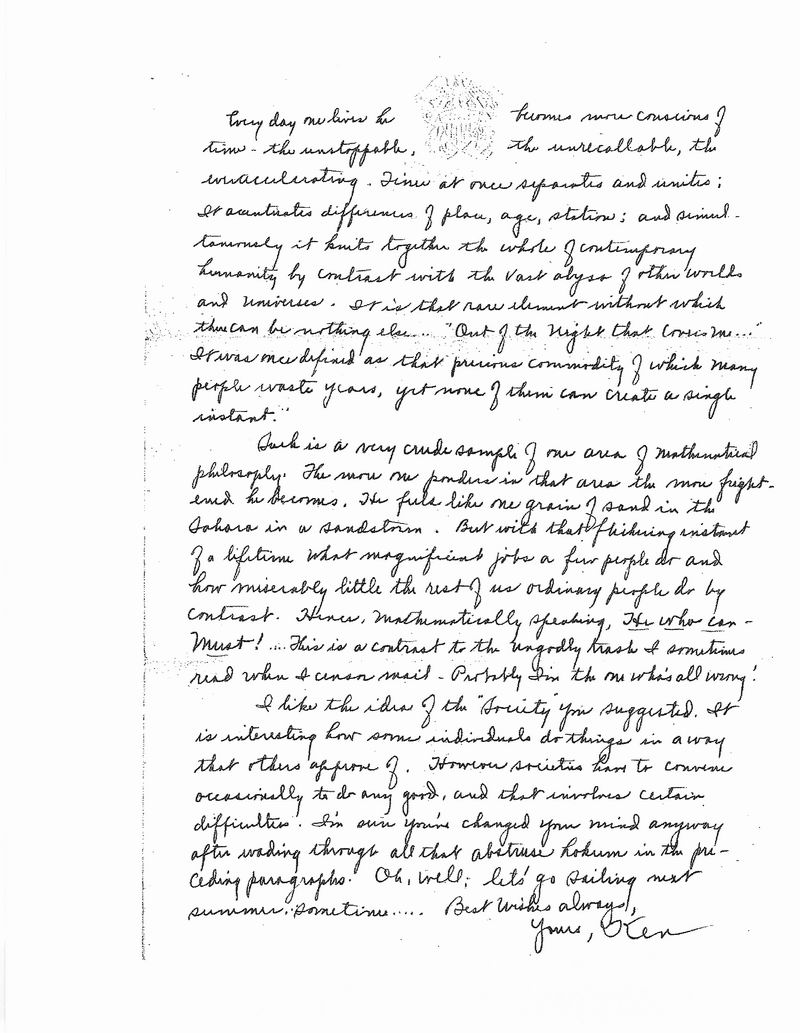 Every day one lives he becomes more conscious of
time - the unstoppable, the unrecallable, the
unaccelerating. Time at once separates and unites;
It accentuates differences of place, age, station; and simul-
taneously it knits together the whole of contemporary
humanity by contrast with the vast abyss of other worlds
and universes. It is that rare element without which
there can be nothing else... "Out of the Night that Covers Me..."
It was once defined as that precious commodity of which many
people waste years, yet none of them can create a single
instant."
Such is a very crude sample of one area of Mathematical
philosophy. The more one ponders in that area the more fright-
ened he becomes. He feels like one grain of sand in the
Sahara in a sandstorm. But with that flickering instant
of a lifetime what magnificent jobs a few people do and
how miserably little the rest of us ordinary people do by
contrast. Hence, Mathematically speaking, He who can -
Must! ....This is a contrast to the ungodly trash I sometimes
read when I censor mail - Probably I'm the one who's all wrong!
I like the idea of the "Society" you suggested. It
is interesting how some individuals do things in a way
that others approve of. However societies have to convene
occasionally to do any good, and that involves certain
difficulties. I'm sure you've changed your mind anyway
after wading through all that abstruse hokum in the pre-
ceding paragraphs. Oh, well; let's go sailing next
summer, sometime..... Best Wishes always,
Yours, Ken